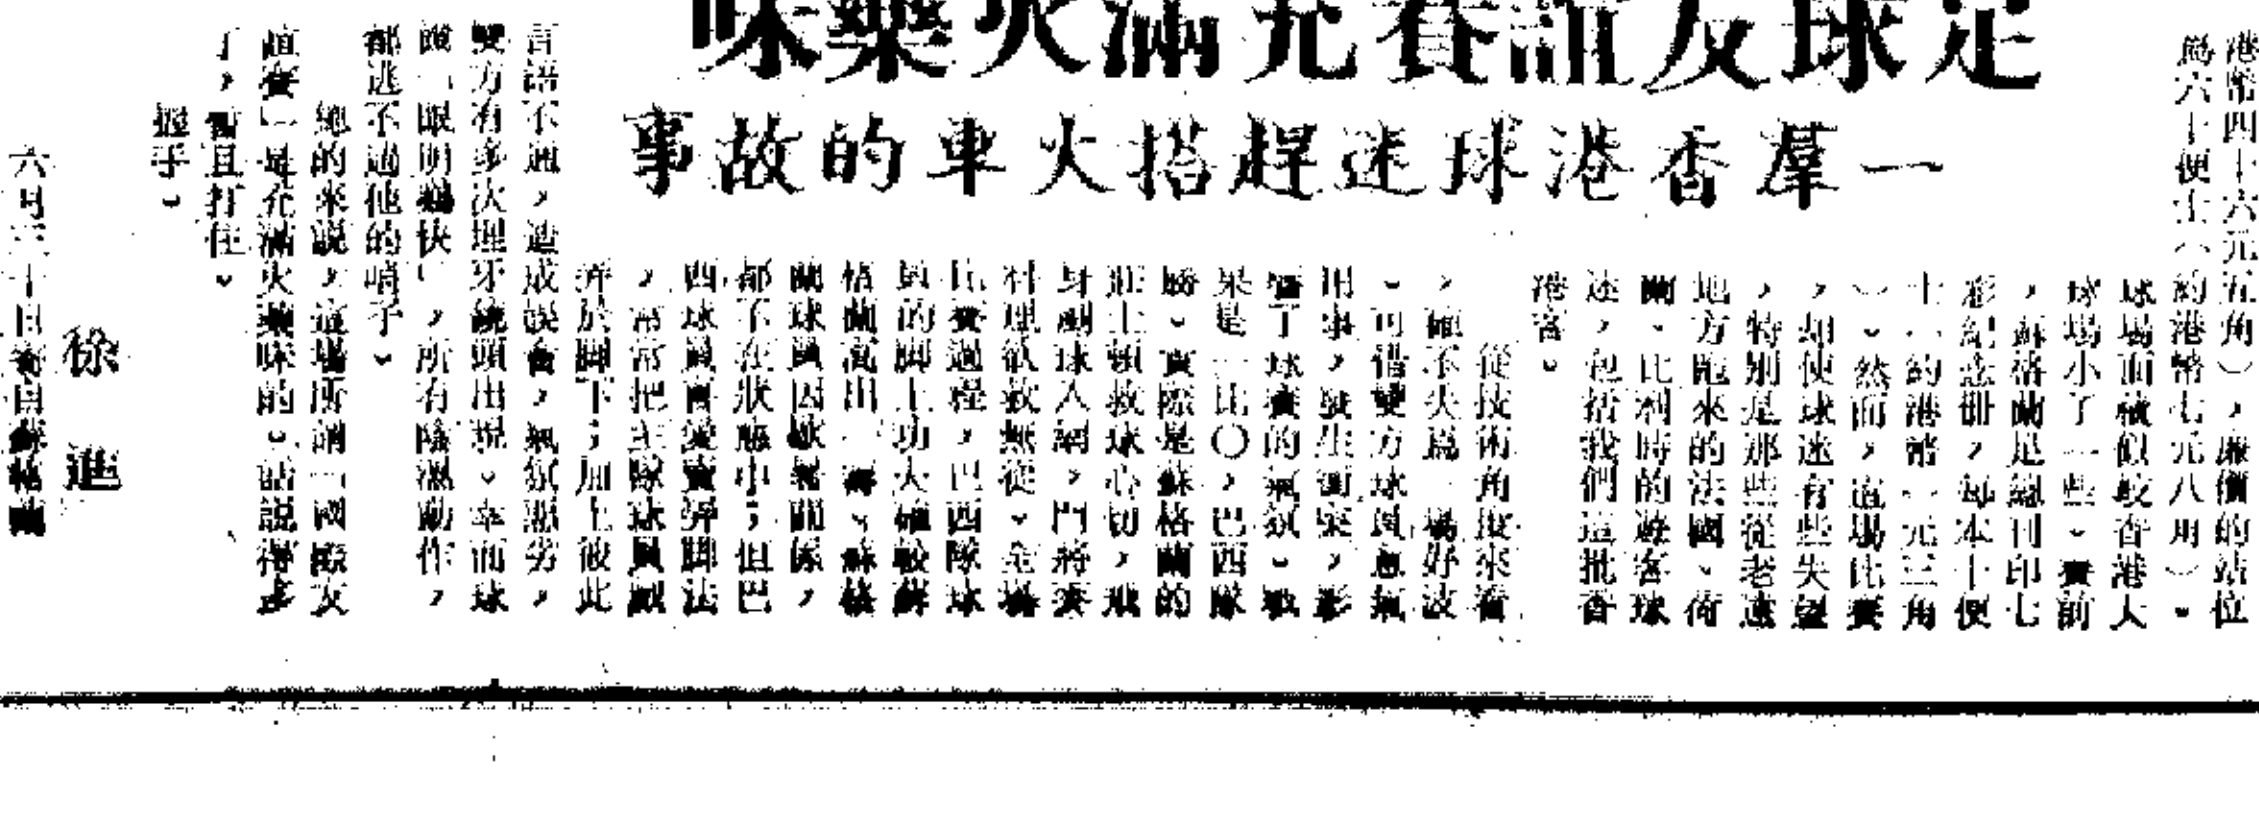 足球友誼賽充滿火藥味
一羣香港球迷趕搭火車的故事
港幣四十六元五角），廉價的站位
為六十便士（約港幣七元八角）。
球場面積似較香港大
球場小了一些。賽前
，蘇格蘭足總刊印七
彩紀念冊，每本十便
士（約港幣一元三角
）。然而，這場比賽
，却使球迷有些失望
，特別是那些從老遠
地方跑來的法國、荷
蘭、比利時的遊客球
迷，包括我們這批香
港客。
從技術角度來看
，確不失為一場好波
。可惜雙方球員意氣
用事，發生衝突，影
響了球賽的氣氛。戰
果是一比〇，巴西隊
勝。實際是蘇格蘭的
莊士頓救球心切，飛
身頂球入網，門將
科理欲救無從。全場
比賽過程，巴西隊球
員的脚上功夫確較蘇
格蘭高出一籌、蘇格
蘭球員因歇暑關係，
都不在狀態中；但巴
西球員喜愛賣弄脚法
，常常把主隊球員戲
弄於脚下；加上彼此
言語不通，造成誤會，氣氛惡劣，
雙方有多次埋牙鏡頭出現。幸而球
證「眼明鷄快」，所有陰濕動作，
都逃不過他的哨子。
總的來說，這場所謂「國際友
誼賽」是充滿火藥味的。話說得多
了，暫且打住。
握手。
徐進
六月三十日寄自蘇格蘭